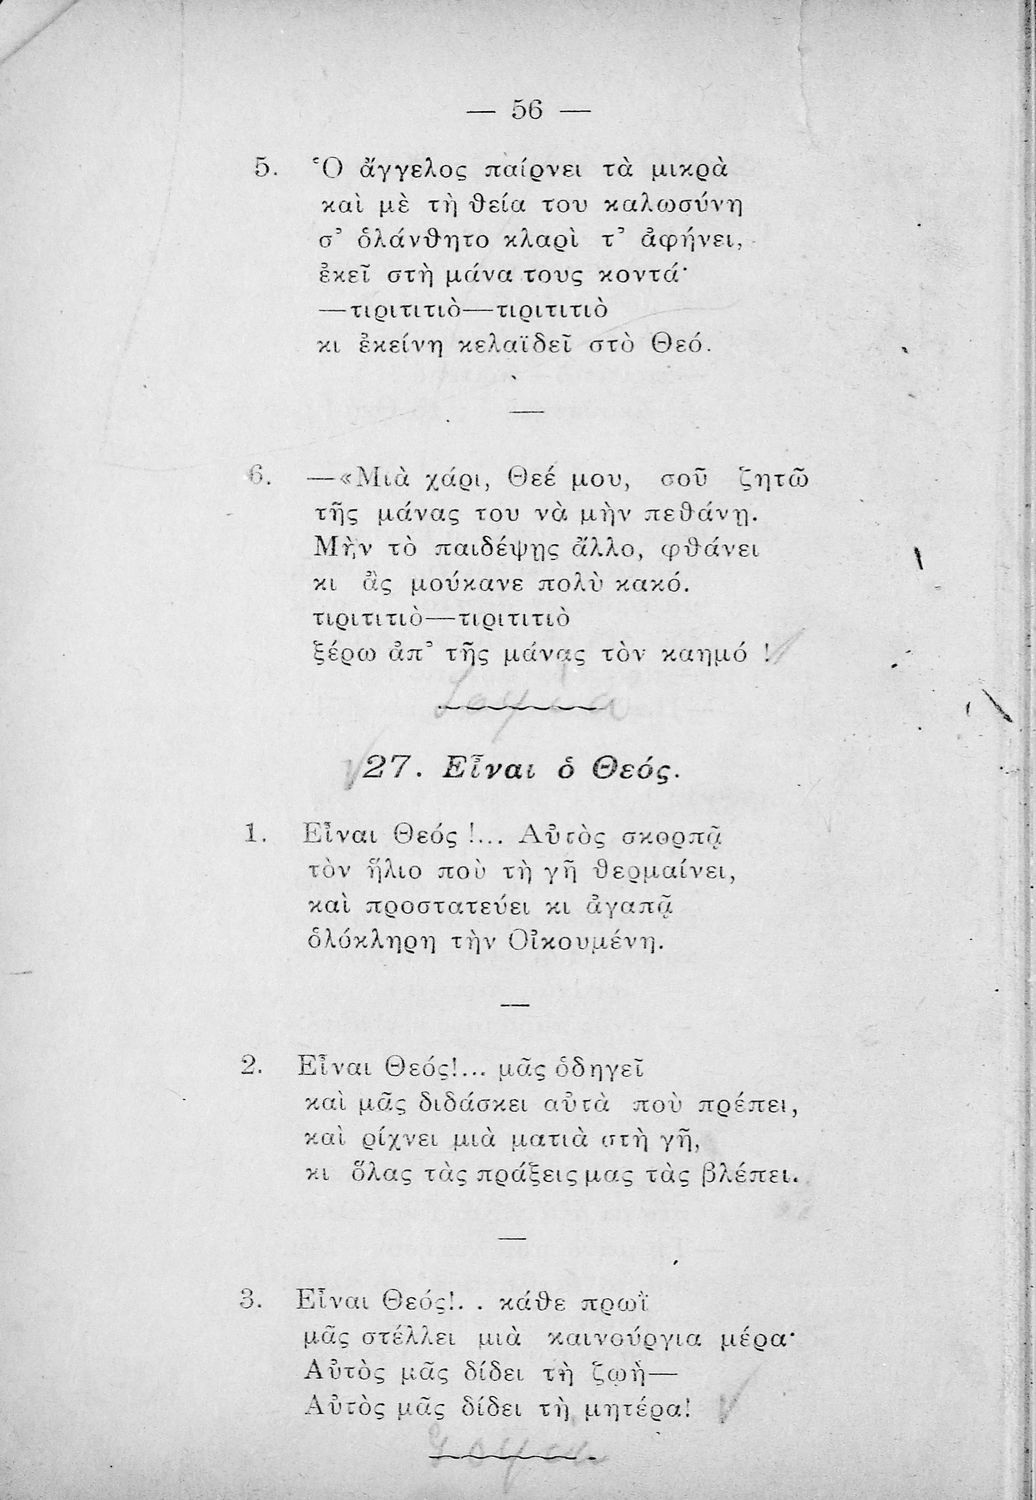 — 56 —
5. Ὁ ἄγγελος παίρνει τὰ μικρὰ
καὶ μὲ τὴ θεία του καλωσύνη
σ᾿ ὁλάνθητο κλαρὶ τ᾿ ἀφήνει,
ἐκεῖ στὴ μάνα τους κοντά·
—τιριτιτιὸ—τιριτιτιὸ
κι ἐκείνη κελαϊδεῖ στὸ Θεό.
—
6. —«Μιὰ χάρι, Θεέ μου, σοῦ ζητῶ
τῆς μάνας του νὰ μὴν πεθάνῃ.
Μὴν τὸ παιδέψῃς ἄλλο, φθάνει
κι ἂς μοὔκανε πολὺ κακό.
τιριτιτιὸ—τιριτιτιὸ
ξέρω ἀπ᾿ τῆς μάνας τὸν καημό !
27. Εἶναι ὁ Θεός.
1. Εἶναι Θεός !... Αὐτὸς σκορπᾷ
τὸν ἥλιο ποὺ τὴ γῆ θερμαίνει,
καὶ προστατεύει κι ἀγαπᾷ
ὁλόκληρη τὴν Οἰκουμένη.
—
2. Εἶναι Θεός!... μᾶς ὁδηγεῖ
καὶ μᾶς διδάσκει αὐτὰ ποὺ πρέπει,
καὶ ρίχνει μιὰ ματιὰ στὴ γῆ,
κι ὅλας τὰς πράξεις μας τὰς βλέπει.
—
3. Εἶναι Θεός!. . κάθε πρωῒ
μᾶς στέλλει μιὰ καινούργια μέρα·
Αὐτὸς μᾶς δίδει τὴ ζωὴ—
Αὐτὸς μᾶς δίδει τὴ μητέρα!